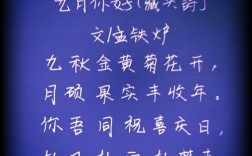 九月你好(藏头诗)
文/孟铁炉
九秋金黄菊花开，
月硕果实丰收年。
你吾同祝喜庆日，